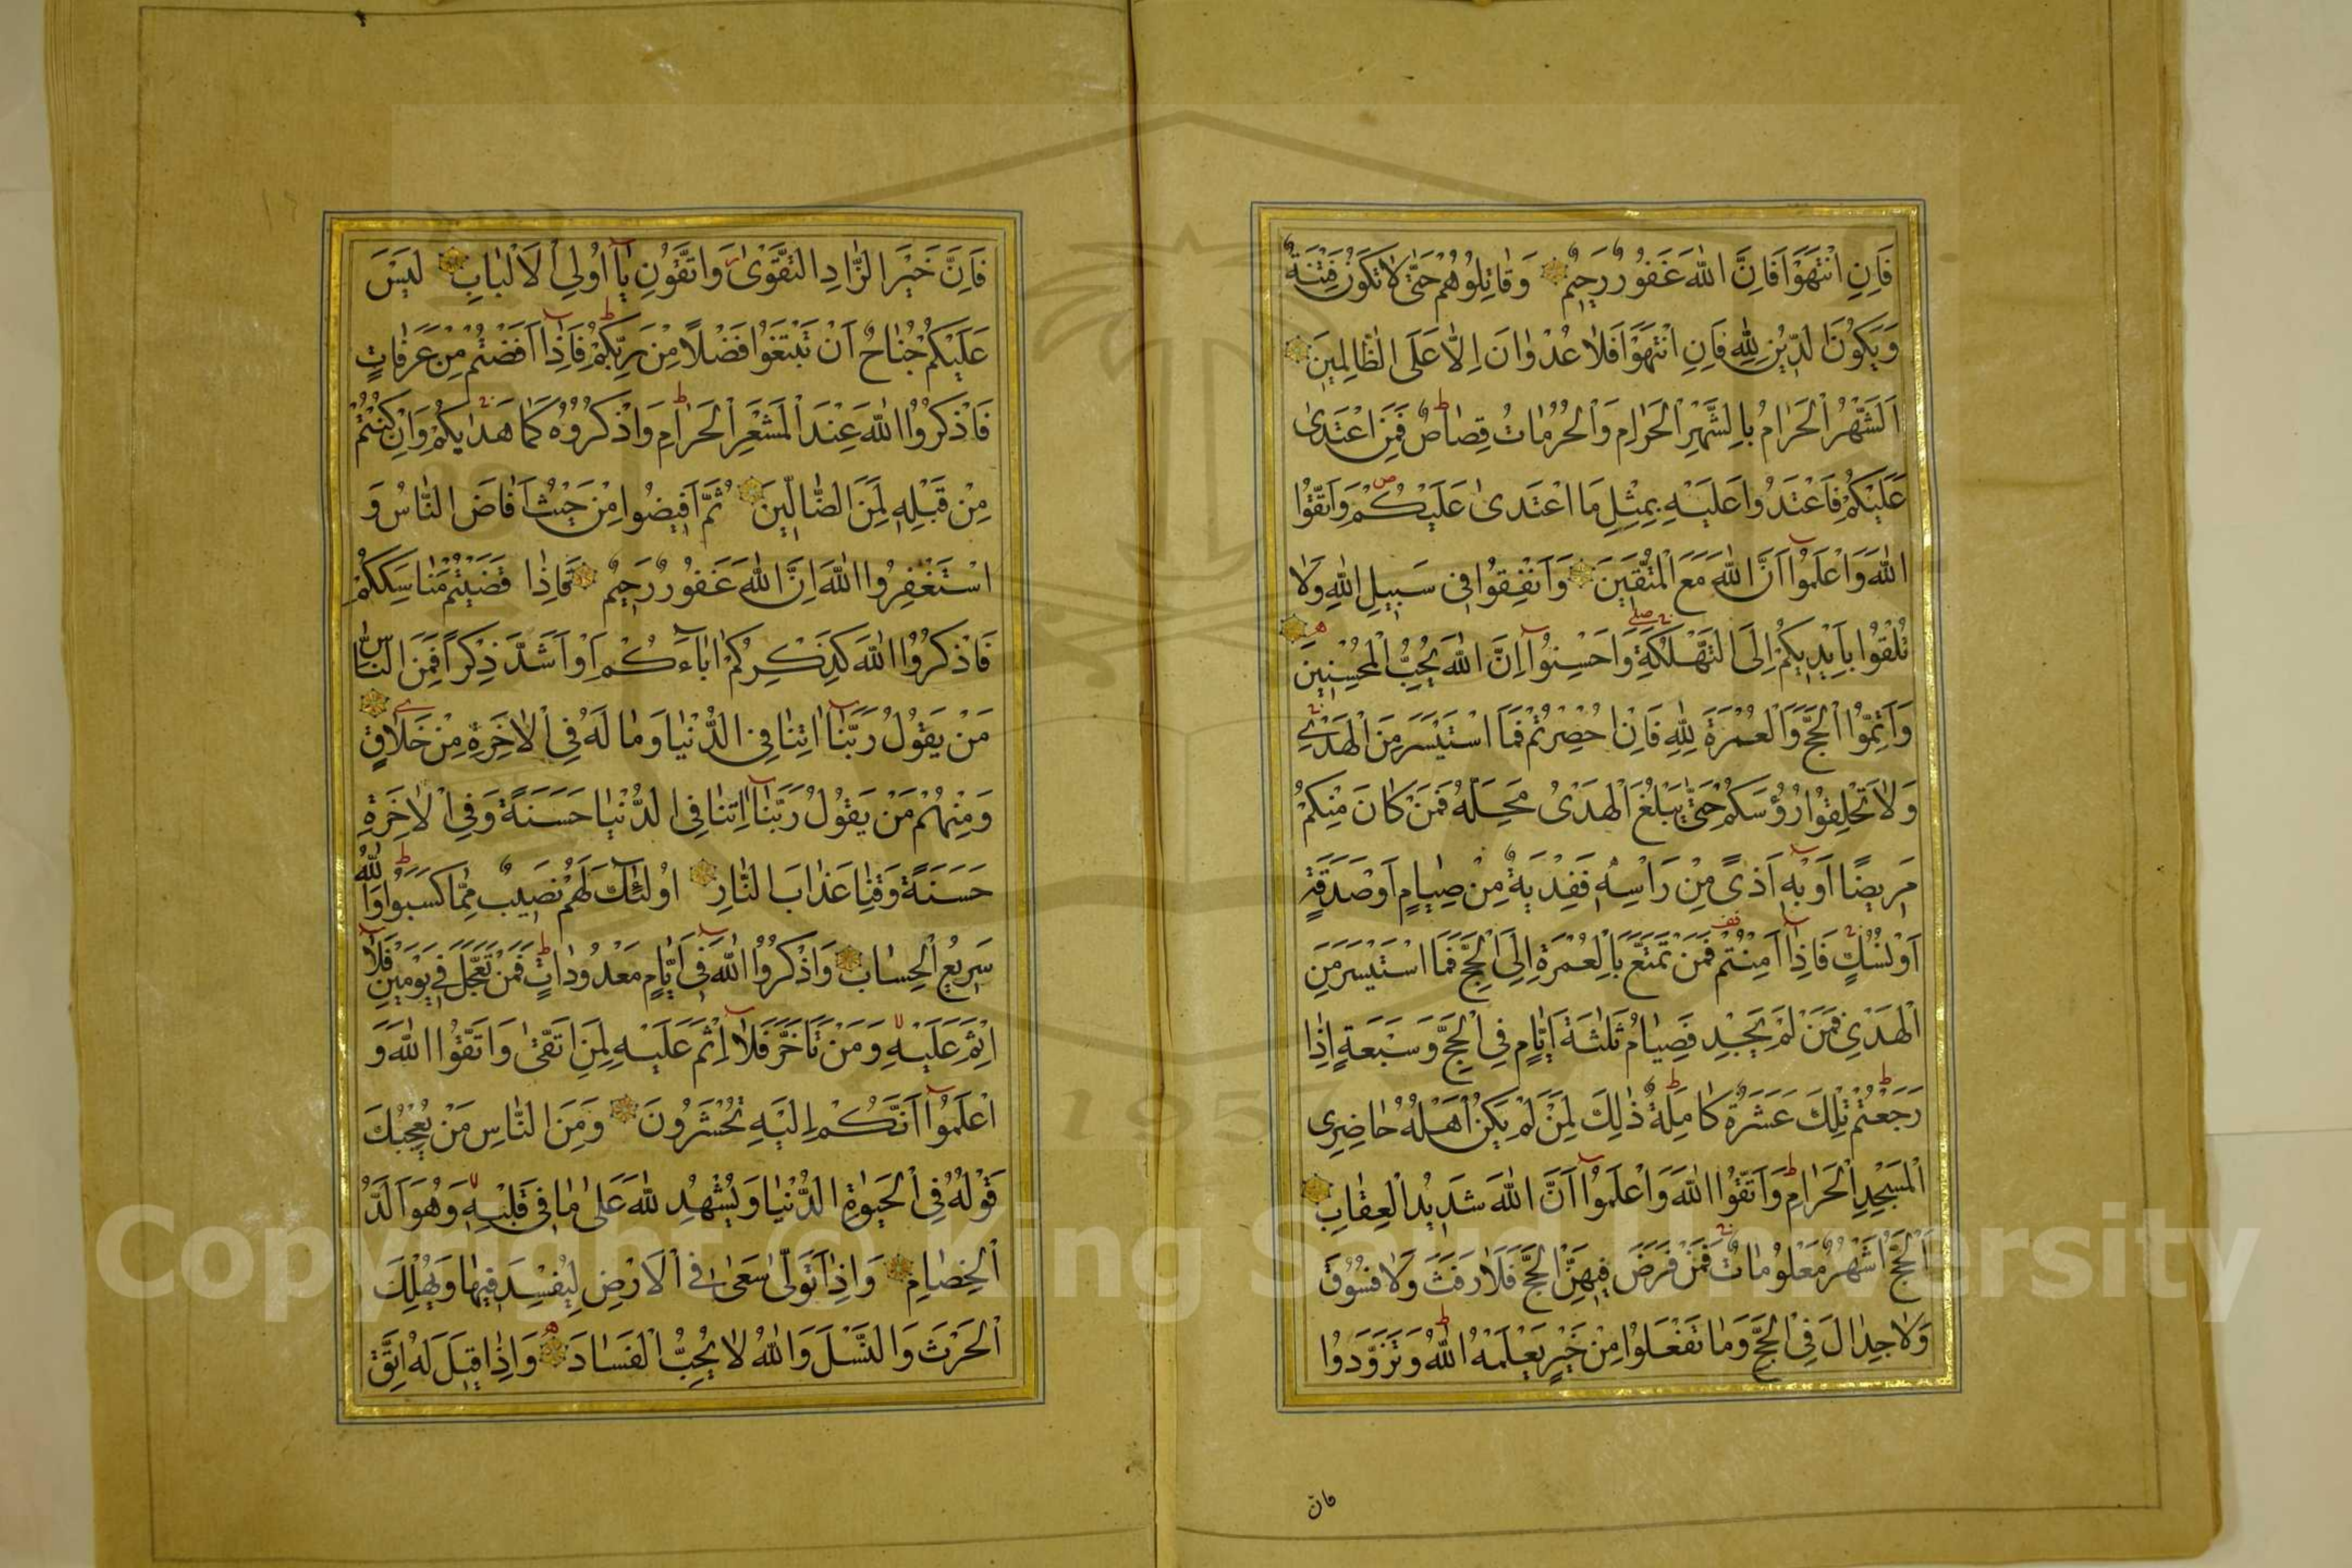 فَاِنِ انْتَهَوْا فَاِنَّ اللّٰهَ غَفُورٌ رَحِيمٌ وَقَاتِلُوهُمْ حَتّٰى لَا تَكُونَ فِتْنَةٌ
وَيَكُونَ الدِّينُ لِلّٰهِ فَاِنِ انْتَهَوْا فَلَا عُدْوَانَ اِلَّا عَلَى الظَّالِمِينَ
اَلشَّهْرُ الْحَرَامُ بِالشَّهْرِ الْحَرَامِ وَالْحُرُمَاتُ قِصَاصٌ فَمَنِ اعْتَدٰى
عَلَيْكُمْ فَاعْتَدُوا عَلَيْهِ بِمِثْلِ مَا اعْتَدٰى عَلَيْكُمْ وَاتَّقُوا
اللّٰهَ وَاعْلَمُوا اَنَّ اللّٰهَ مَعَ الْمُتَّقِينَ وَاَنْفِقُوا فِى سَبِيلِ اللّٰهِ وَلَا
تُلْقُوا بِاَيْدِيكُمْ اِلَى التَّهْلُكَةِ وَاَحْسِنُوا اِنَّ اللّٰهَ يُحِبُّ الْمُحْسِنِينَ
وَاَتِمُّوا الْحَجَّ وَالْعُمْرَةَ لِلّٰهِ فَاِنْ اُحْصِرْتُمْ فَمَا اسْتَيْسَرَ مِنَ الْهَدْيِ
وَلَا تَحْلِقُوا رُؤُسَكُمْ حَتّٰى يَبْلُغَ الْهَدْىُ مَحِلَّهُ فَمَنْ كَانَ مِنْكُمْ
مَرِيضًا اَوْ بِهِ اَذًى مِنْ رَاْسِهِ فَفِدْيَةٌ مِنْ صِيَامٍ اَوْ صَدَقَةٍ
اَوْ نُسُكٍ فَاِذَا اَمِنْتُمْ فَمَنْ تَمَتَّعَ بِالْعُمْرَةِ اِلَى الْحَجِّ فَمَا اسْتَيْسَرَ مِنَ
الْهَدْىِ فَمَنْ لَمْ يَجِدْ فَصِيَامُ ثَلٰثَةِ اَيَّامٍ فِى الْحَجِّ وَسَبْعَةٍ اِذَا
رَجَعْتُمْ تِلْكَ عَشَرَةٌ كَامِلَةٌ ذٰلِكَ لِمَنْ لَمْ يَكُنْ اَهْلُهُ حَاضِرِى
الْمَسْجِدِ الْحَرَامِ وَاتَّقُوا اللّٰهَ وَاعْلَمُوا اَنَّ اللّٰهَ شَدِيدُ الْعِقَابِ
اَلْحَجُّ اَشْهُرٌ مَعْلُومَاتٌ فَمَنْ فَرَضَ فِيهِنَّ الْحَجَّ فَلَا رَفَثَ وَلَا فُسُوقَ
وَلَا جِدَالَ فِى الْحَجِّ وَمَا تَفْعَلُوا مِنْ خَيْرٍ يَعْلَمْهُ اللّٰهُ وَتَزَوَّدُوا
فان
فَاِنَّ خَيْرَ الزَّادِ التَّقْوٰى وَاتَّقُونِ يَا اُولِى الْاَلْبَابِ لَيْسَ
عَلَيْكُمْ جُنَاحٌ اَنْ تَبْتَغُوا فَضْلًا مِنْ رَبِّكُمْ فَاِذَا اَفَضْتُمْ مِنْ عَرَفَاتٍ
فَاذْكُرُوا اللّٰهَ عِنْدَ الْمَشْعَرِ الْحَرَامِ وَاذْكُرُوهُ كَمَا هَدٰيكُمْ وَاِنْ كُنْتُمْ
مِنْ قَبْلِهِ لَمِنَ الضَّالِّينَ ثُمَّ اَفِيضُوا مِنْ حَيْثُ اَفَاضَ النَّاسُ وَ
اسْتَغْفِرُوا اللّٰهَ اِنَّ اللّٰهَ غَفُورٌ رَحِيمٌ فَاِذَا قَضَيْتُمْ مَنَاسِكَكُمْ
فَاذْكُرُوا اللّٰهَ كَذِكْرِكُمْ اٰبَاءَكُمْ اَوْ اَشَدَّ ذِكْرًا فَمِنَ النَّاسِ
مَنْ يَقُولُ رَبَّنَا اٰتِنَا فِى الدُّنْيَا وَمَا لَهُ فِى الْاٰخِرَةِ مِنْ خَلَاقٍ
وَمِنْهُمْ مَنْ يَقُولُ رَبَّنَا اٰتِنَا فِى الدُّنْيَا حَسَنَةً وَفِى الْاٰخِرَةِ
حَسَنَةً وَقِنَا عَذَابَ النَّارِ اُولٰئِكَ لَهُمْ نَصِيبٌ مِمَّا كَسَبُوا وَاللّٰهُ
سَرِيعُ الْحِسَابِ وَاذْكُرُوا اللّٰهَ فِى اَيَّامٍ مَعْدُودَاتٍ فَمَنْ تَعَجَّلَ فِى يَوْمَيْنِ فَلَا
اِثْمَ عَلَيْهِ وَمَنْ تَاَخَّرَ فَلَا اِثْمَ عَلَيْهِ لِمَنِ اتَّقٰى وَاتَّقُوا اللّٰهَ وَ
اعْلَمُوا اَنَّكُمْ اِلَيْهِ تُحْشَرُونَ وَمِنَ النَّاسِ مَنْ يُعْجِبُكَ
قَوْلُهُ فِى الْحَيٰوةِ الدُّنْيَا وَيُشْهِدُ اللّٰهَ عَلٰى مَا فِى قَلْبِهِ وَهُوَ اَلَدُّ
الْخِصَامِ وَاِذَا تَوَلّٰى سَعٰى فِى الْاَرْضِ لِيُفْسِدَ فِيهَا وَيُهْلِكَ
الْحَرْثَ وَالنَّسْلَ وَاللّٰهُ لَا يُحِبُّ الْفَسَادَ وَاِذَا قِيلَ لَهُ اتَّقِ
Copyright © King Saud University
195